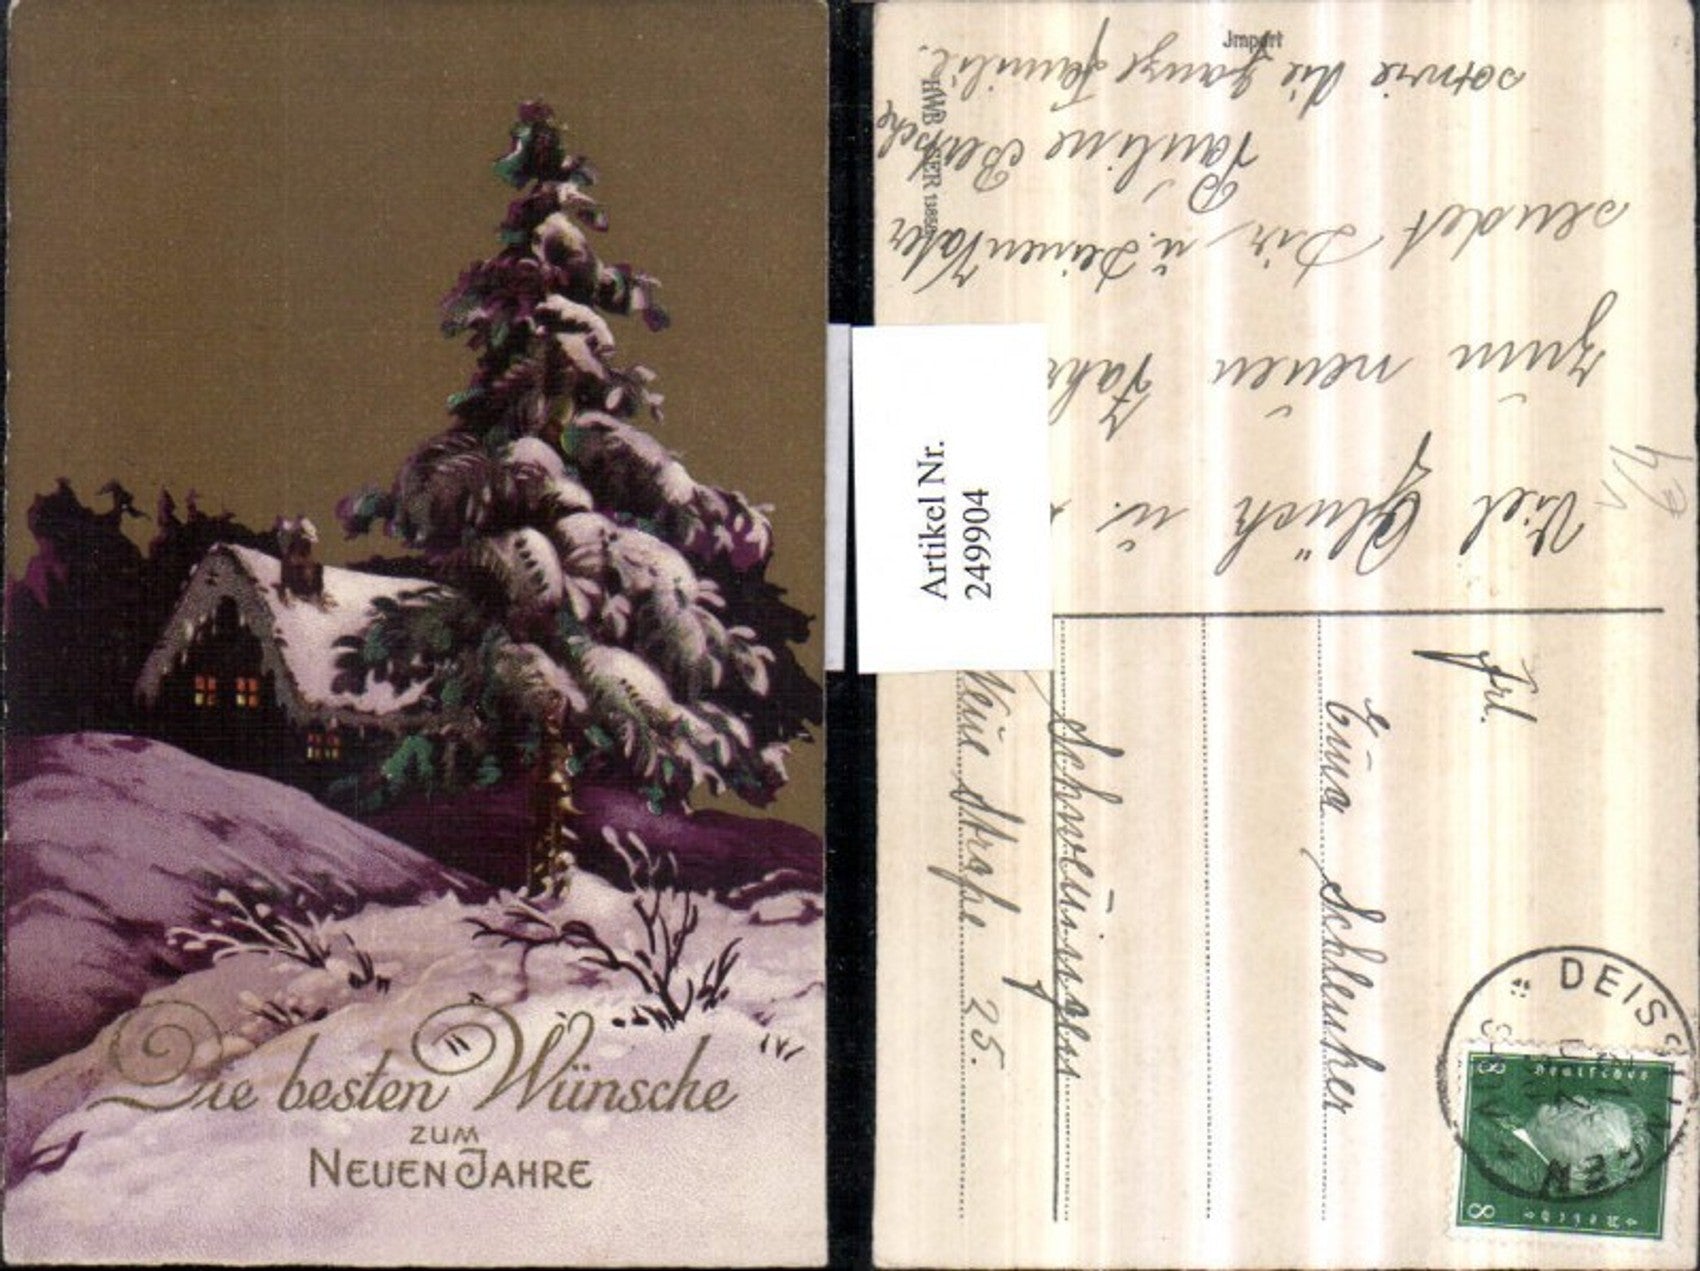 Die besten Wünsche
ZUM
NEUEN JAHRE
Artikel Nr.
249904
Import
HWB SER
Viel Glück u.
zum neuen Jahr
sendet Dir u. Deinen Vater
Pauline
sowie die ganze Familie.
Frl.
Schlenker
Schwenningen
Neue Straße 25.
DEISSLINGEN
Deutsches
Reich
8
8